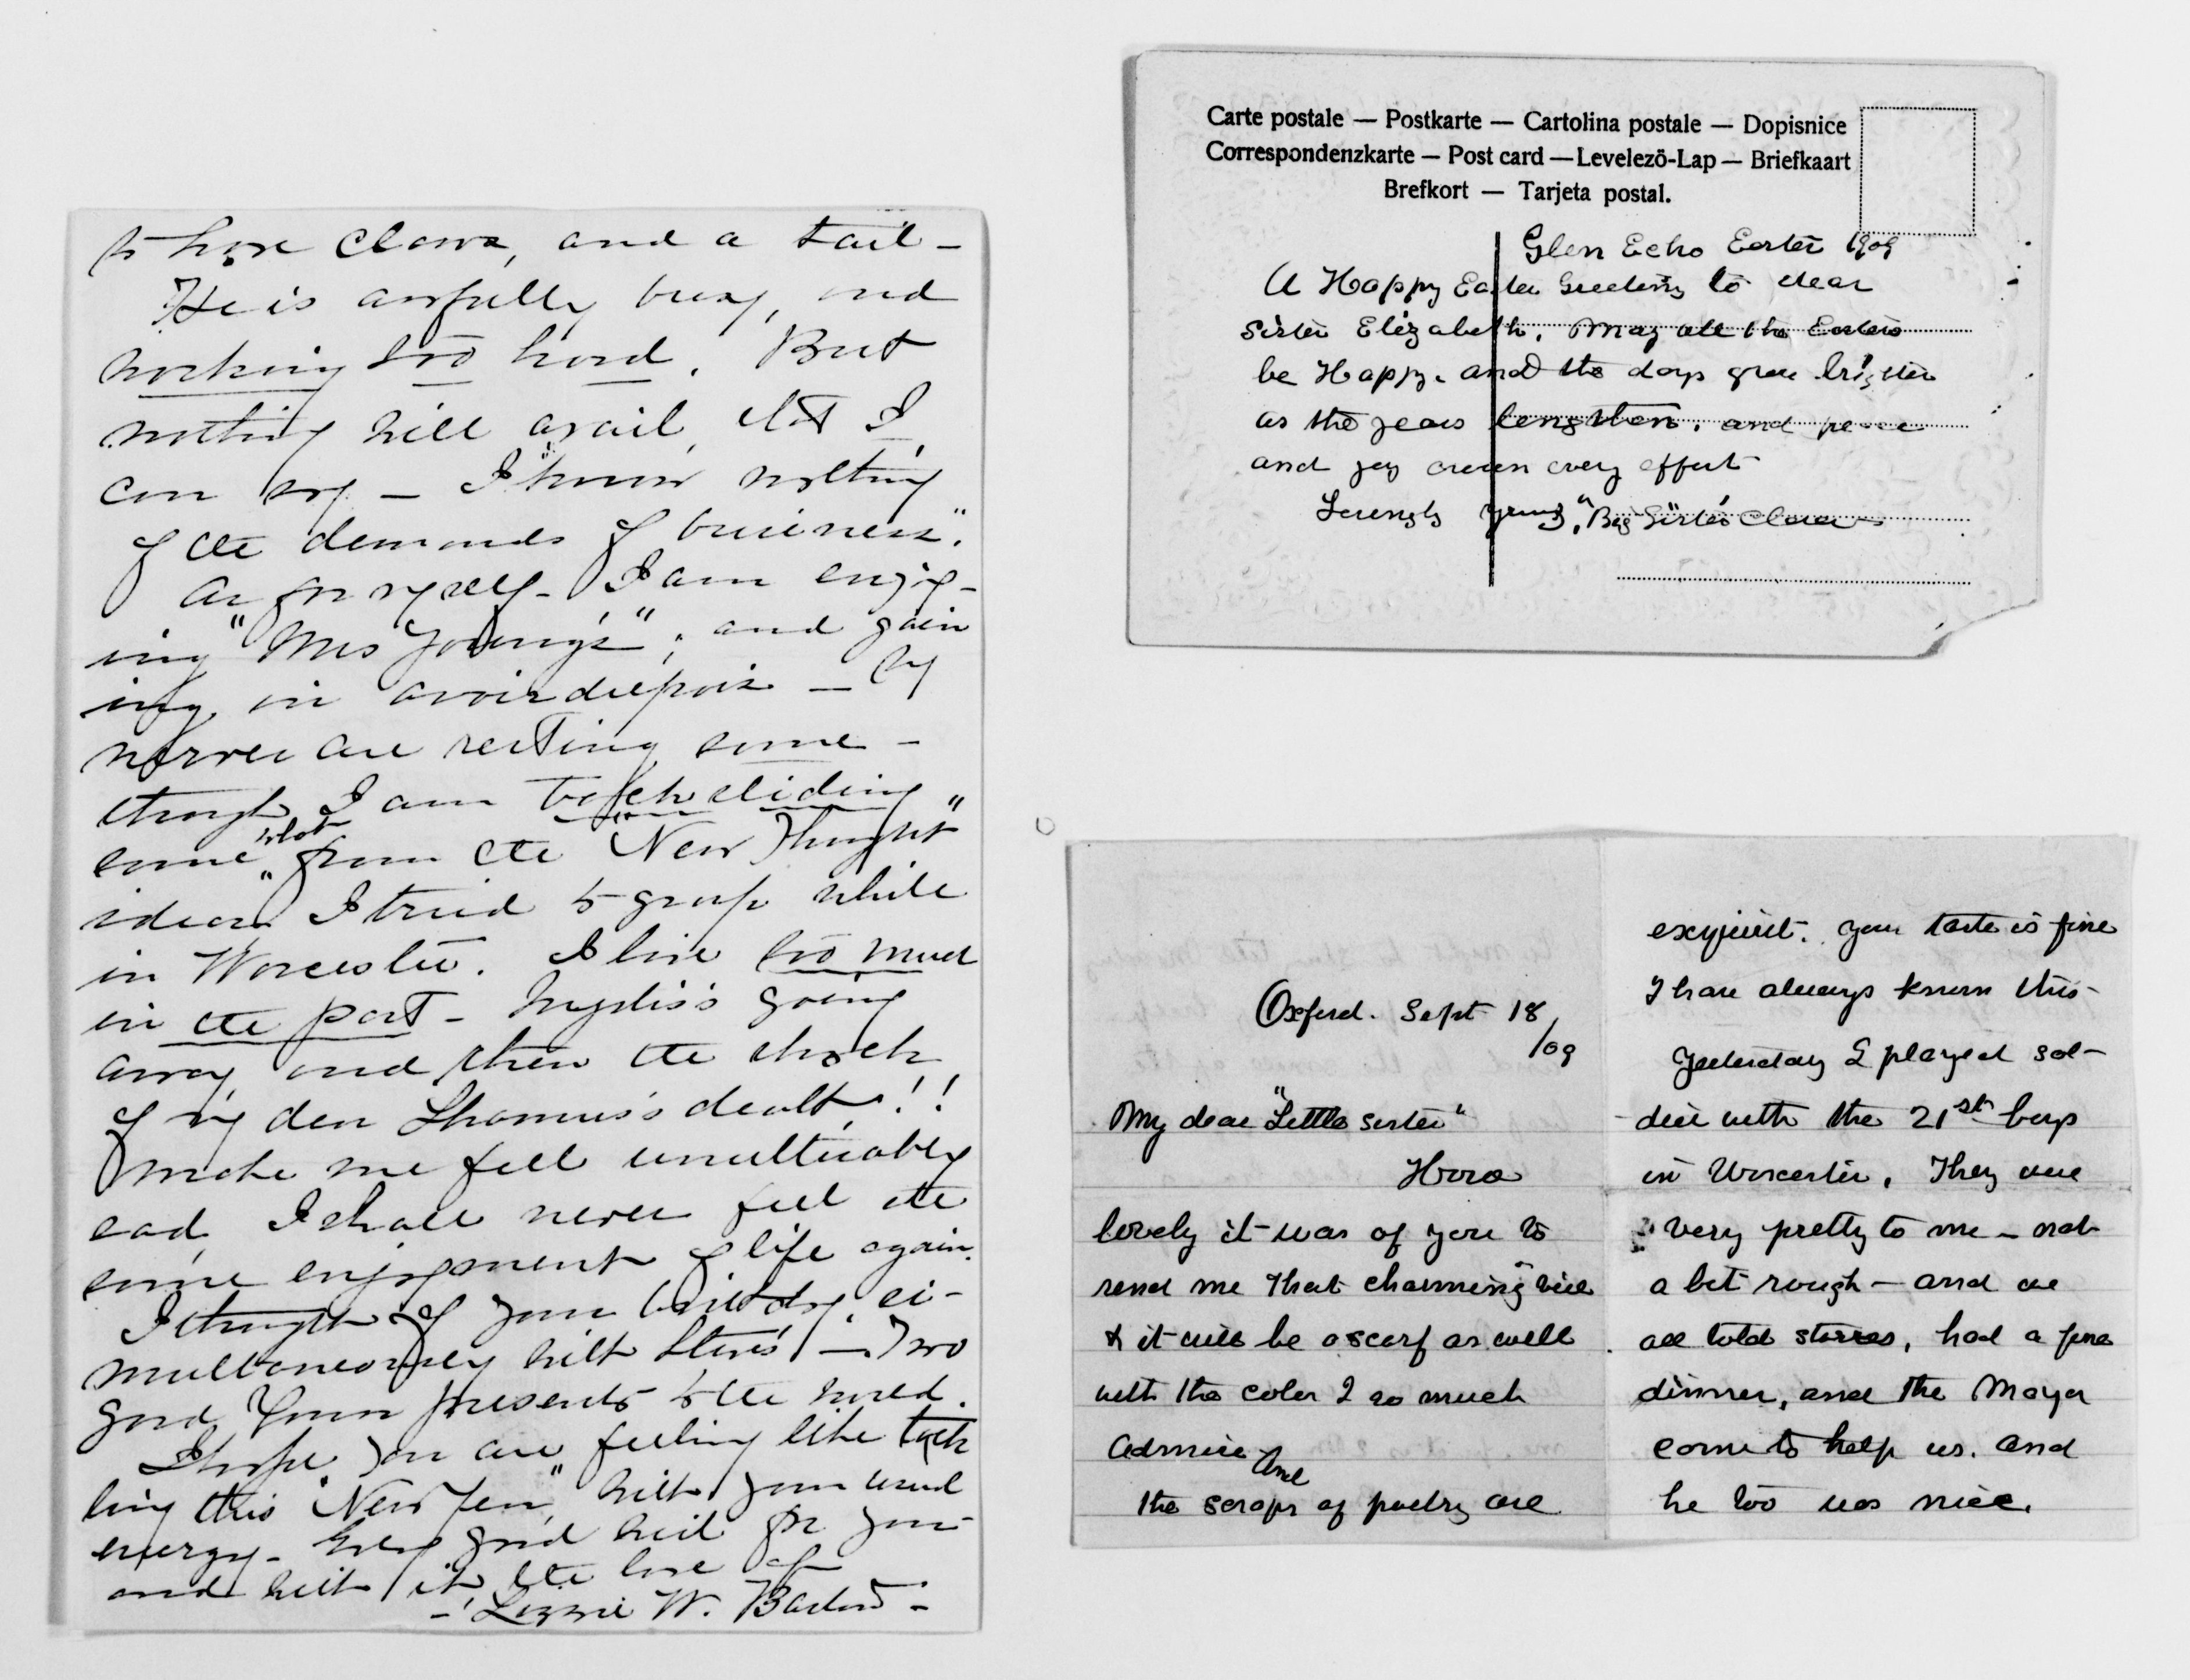 to have claws, and a tail -
He is awfully busy, and
working too hard. But
nothing will avail, that I
can say - I "know nothing
of the demands of business".
As for myself - I am enjoy-
ing "Mrs Young's", and gain
ing in avoirdupois - My
nerves are resting some -
though I am backsliding
some what from the "New Thought"
ideas I tried to grasp while
in Worcester. I live too much
in the past - going
away and then the shock
of my dear death!!
make me feel unutterably
sad. I shall never feel the
same enjoyment of life again.
I thought of your birthday, si-
multaneously with Steve's - Two
good presents to the world.
I hope you are feeling like tack
ling this "New Year" with your usual
energy - Every good wish for you
and with it the love of
- Lizzie W. Barton -
Carte postale — Postkarte — Cartolina postale — Dopisnice
Correspondenzkarte — Post card — Levelezö-Lap — Briefkaart
Brefkort — Tarjeta postal.
Glen Echo Easter 1909
A Happy Easter Greeting to dear
Sister Elizabeth. May all the Easters
be Happy. and the days grow brighter
as the years lengthen. and peace
and joy crown every effort
Lovingly yours, "Big Sister" Clara
Oxford. Sept 18/09
My dear "Little sister"
How
lovely it was of you to
send me that charming veil
& it will be a scarf as well
with the color I so much
admire And
the scraps of poetry are
exquisit. your taste is fine
I have always known this -
Yesterday I played sol-
dier with the 21st boys
in Worcester. They are
very pretty to me - not
a bit rough - and we
all told stories, had a fine
dinner, and the Mayor
came to help us. and
he too was nice.